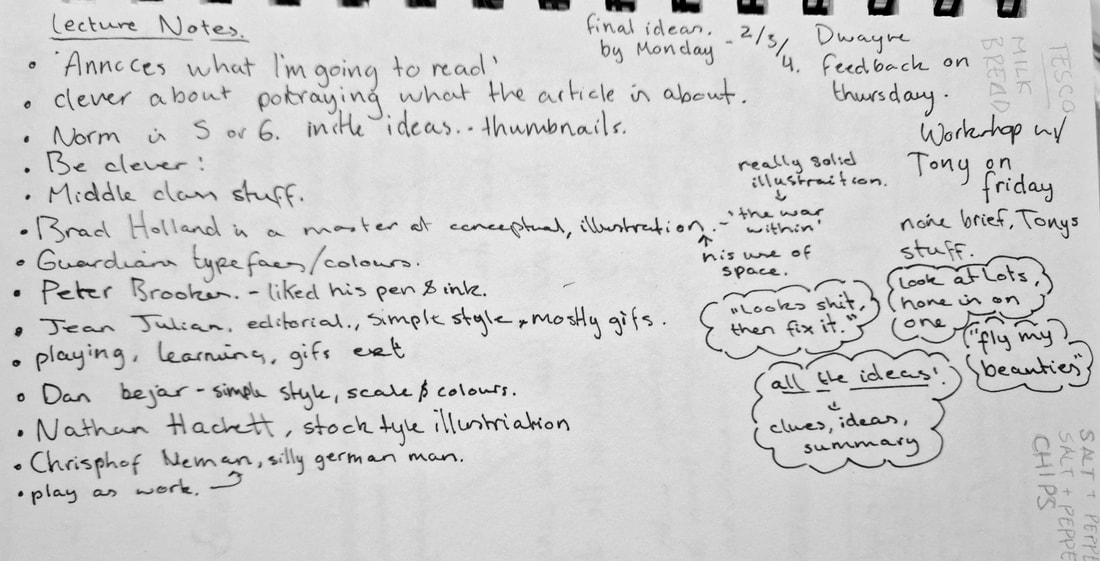 Lecture Notes.
• 'Annoces what I'm going to read'
• Clever about potraying what the article is about.
• Norm is 5 or 6. ideas.. thumbnails.
• Be clever!
• Middle class stuff.
• Brad Holland is a master at conceptual, illustration. - 'the war within'
• Guardians typefaces/colours.
• Peter Brookes. - liked his pen & ink.
• Jean Julian. editorial., simple style, mostly gifs.
• playing, learning, gifs ext
• Dan bejar - simple style, scale & colours.
• Nathan Hackett, stock tyle illustriation
• Chrisphof Neman, silly german man.
• play as work.
final ideas.
by Monday - 2/3/4.
Dwayne
feedback on
thursday.
Workshop w/
Tony on
friday
none brief, Tonys
stuff.
really solid
illustraition.
his use of
space.
"Looks shit,
then fix it."
look at Lots,
hone in on
one
"fly my
beauties"
all the ideas!
clues, ideas,
summary
TESCO
MILK
BREAD
SALT + PEPPE
SALT + PEPPE
CHIPS